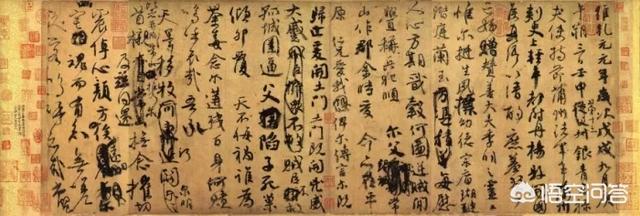 維乾元元年歲次戊戌九月庚
午朔三日壬申第十三叔銀青光祿
夫使持節蒲州諸軍事蒲州
刺史上輕車都尉丹楊縣開國
侯真卿以清酌庶羞祭于
亡姪贈贊善大夫季明之靈曰
惟爾挺生夙標幼德宗廟瑚璉
階庭蘭玉每慰
人心方期戩穀何圖逆賊閒
釁稱兵犯順爾父竭誠常
山作郡余時受命亦在平
原仁兄愛我俾爾傳言爾既
歸止爰開土門土門既開凶威
大蹙賊臣不救
孤城圍逼父陷子死巢
傾卵覆天不悔禍誰為
荼毒念爾遘殘百身何贖
嗚乎哀哉吾承
天澤移牧河關泉明
首櫬及茲同還撫念摧切
震悼心顏方俟
魂而有知無嗟
嗚呼哀哉尚饗
悟空问答